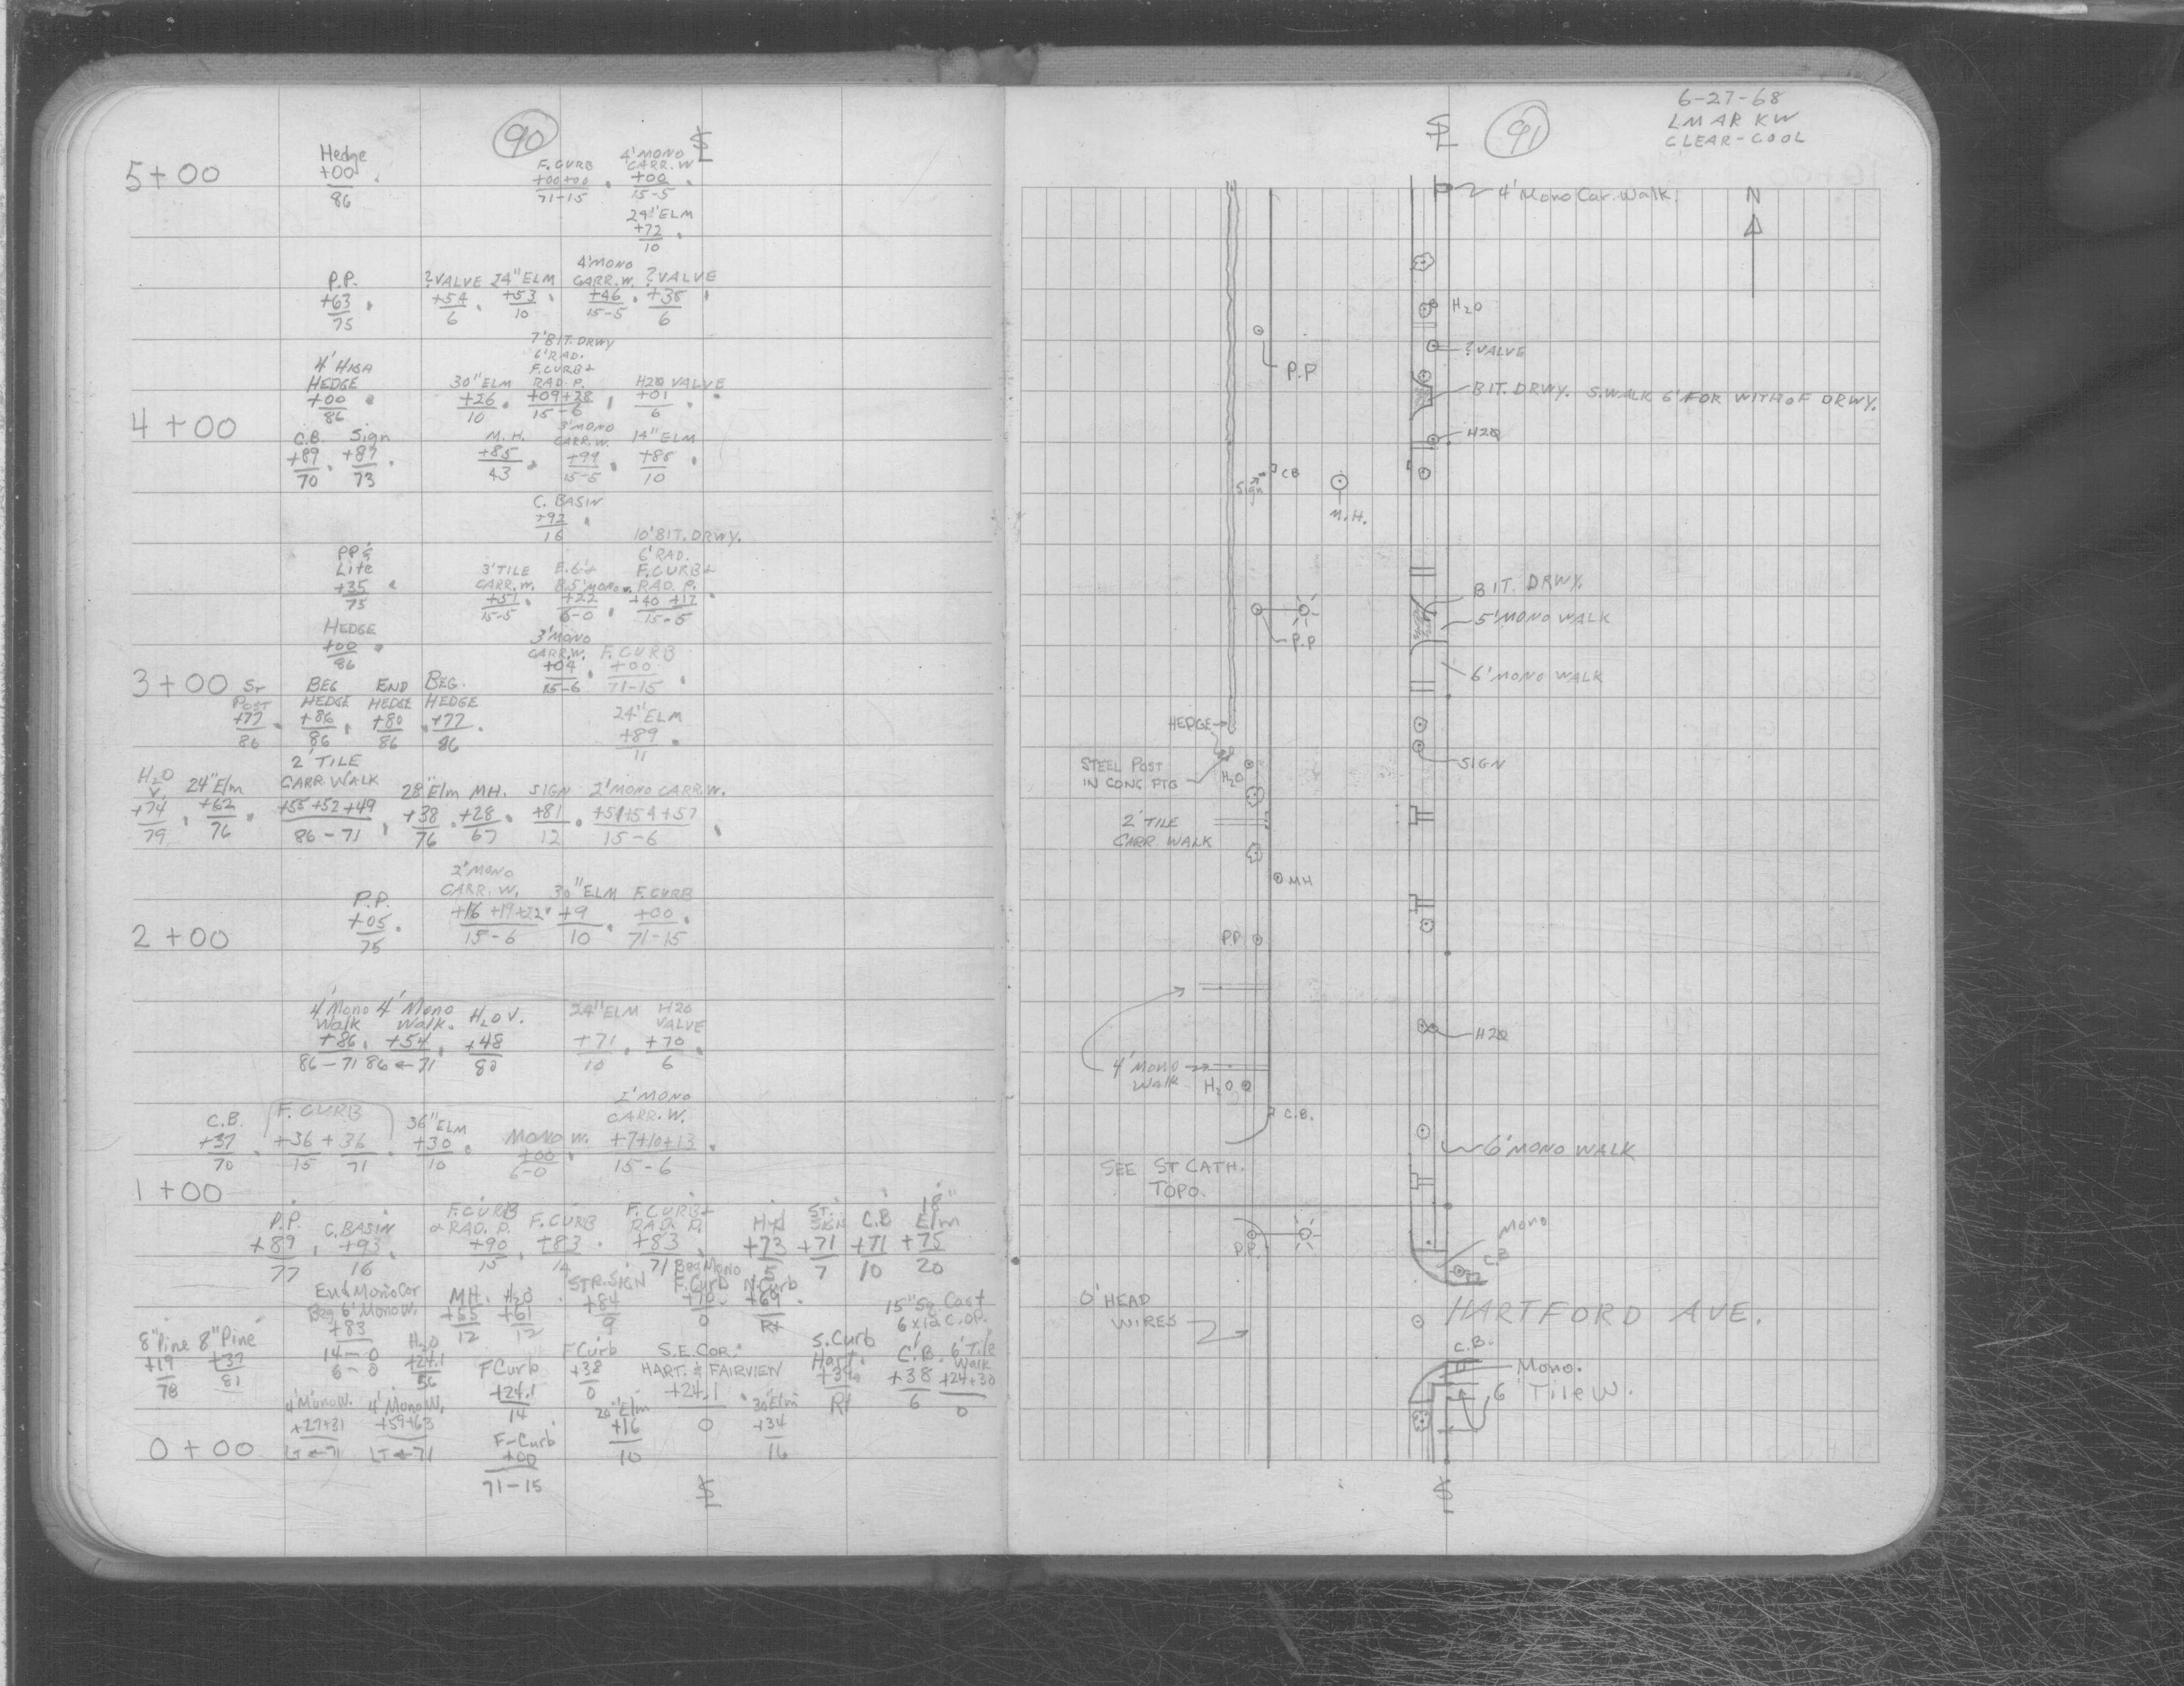 90
5+00
Hedge
+00
86
F. CURB
+00+00
71-15
4' MONO
CARR. W
+00
15-5
24" ELM
+72
10
P.P.
+63
75
? VALVE
+54
6
24" ELM
+53
10
4' MONO
CARR. W.
+46
15-5
? VALVE
6
4' HIGH
HEDGE
+00
86
30" ELM
+26
10
7' BIT. DRWY
6' RAD.
F. CURB &
RAD. P.
+09+28
15-6
H2O VALVE
+01
6
4+00
C.B.
+89
70
Sign
+87
73
M. H.
+85
43
3' MONO
CARR. W.
15-5
14" ELM
10
C. BASIN
+92
16
PP &
Lite
+35
75
3' TILE
CARR. W.
+51
15-5
+22
6-0
10' BIT. DRWY.
6' RAD.
F. CURB &
RAD. P.
+40 +17
15-5
HEDGE
+00
86
3' MONO
CARR. W.
+04
15-6
F. CURB
+00
71-15
3+00
ST
POST
+77
86
BEG
HEDGE
+86
86
END
HEDGE
+80
86
BEG.
HEDGE
+77
86
24" ELM
+89
11
H2O
V.
+74
79
24" Elm
+62
76
2' TILE
CARR. WALK
+55 +52 +49
86-71
28" Elm
+38
76
MH.
+28
67
SIGN
+81
12
2' MONO CARR. W.
+51+54+57
15-6
P.P.
+05
75
2' MONO
CARR. W.
+16 +19+22
15-6
30" ELM
+9
10
F. CURB
+00
71-15
2+00
4' Mono
Walk
+86
86-71
4' Mono
Walk.
+54
86-71
H2O V.
+48
80
24" ELM
+71
10
H2O
VALVE
+70
6
C.B.
+37
70
F. CURB
+36 + 36
15 71
36" ELM
+30
10
MONO W.
+00
6-0
2' MONO
CARR. W.
+7+10+13
15-6
1+00
P.P.
+89
77
C. BASIN
+93
16
F. CURB
& RAD. P.
+90
15
F. CURB
+83
14
F. CURB &
RAD. P.
+83
71
Hyd
+73
5
ST.
SIGN
+71
7
C.B
+71
10
18"
Elm
+75
20
End Mono Cor
Beg 6' Mono W.
+83
14-0
6-0
MH.
+55
12
H2O
+61
12
STR. SIGN
+84
9
Beg Mono
F. Curb
+70
0
N. Curb
+69
Rt
15" Sq. Cast
8" Pine
+19
78
8" Pine
+37
81
H2O
+24.1
56
F Curb
+24.1
14
F Curb
+38
0
S.E. COR.
HART. & FAIRVIEW
+24.1
0
S. Curb
Hart.
Rt
C.B.
+38
6
6' Tile
Walk
+24+30
0
4' Mono W.
+27+31
LT-71
4' Mono W.
+59+63
LT-71
F-Curb
+00
71-15
20" Elm
+16
10
30" Elm
+34
16
0+00
91
6-27-68
LM AR KW
CLEAR-COOL
4' Mono Car. Walk.
N
H2O
? VALVE
P.P
BIT. DRWY. S. WALK 6' FOR WITH OF DRWY.
H2O
CB
Sign
M.H.
BIT. DRWY.
5' MONO WALK
P.P
6' MONO WALK
HEDGE
STEEL POST
IN CONC FTG
H2O
SIGN
2' TILE
CARR. WALK
MH
PP
H2O
4' MONO
Walk
H2O
C.B.
6' MONO WALK
SEE ST CATH.
TOPO.
P.P.
Mono
C.B
O'HEAD
WIRES
HARTFORD AVE.
C.B.
Mono.
6' Tile W.